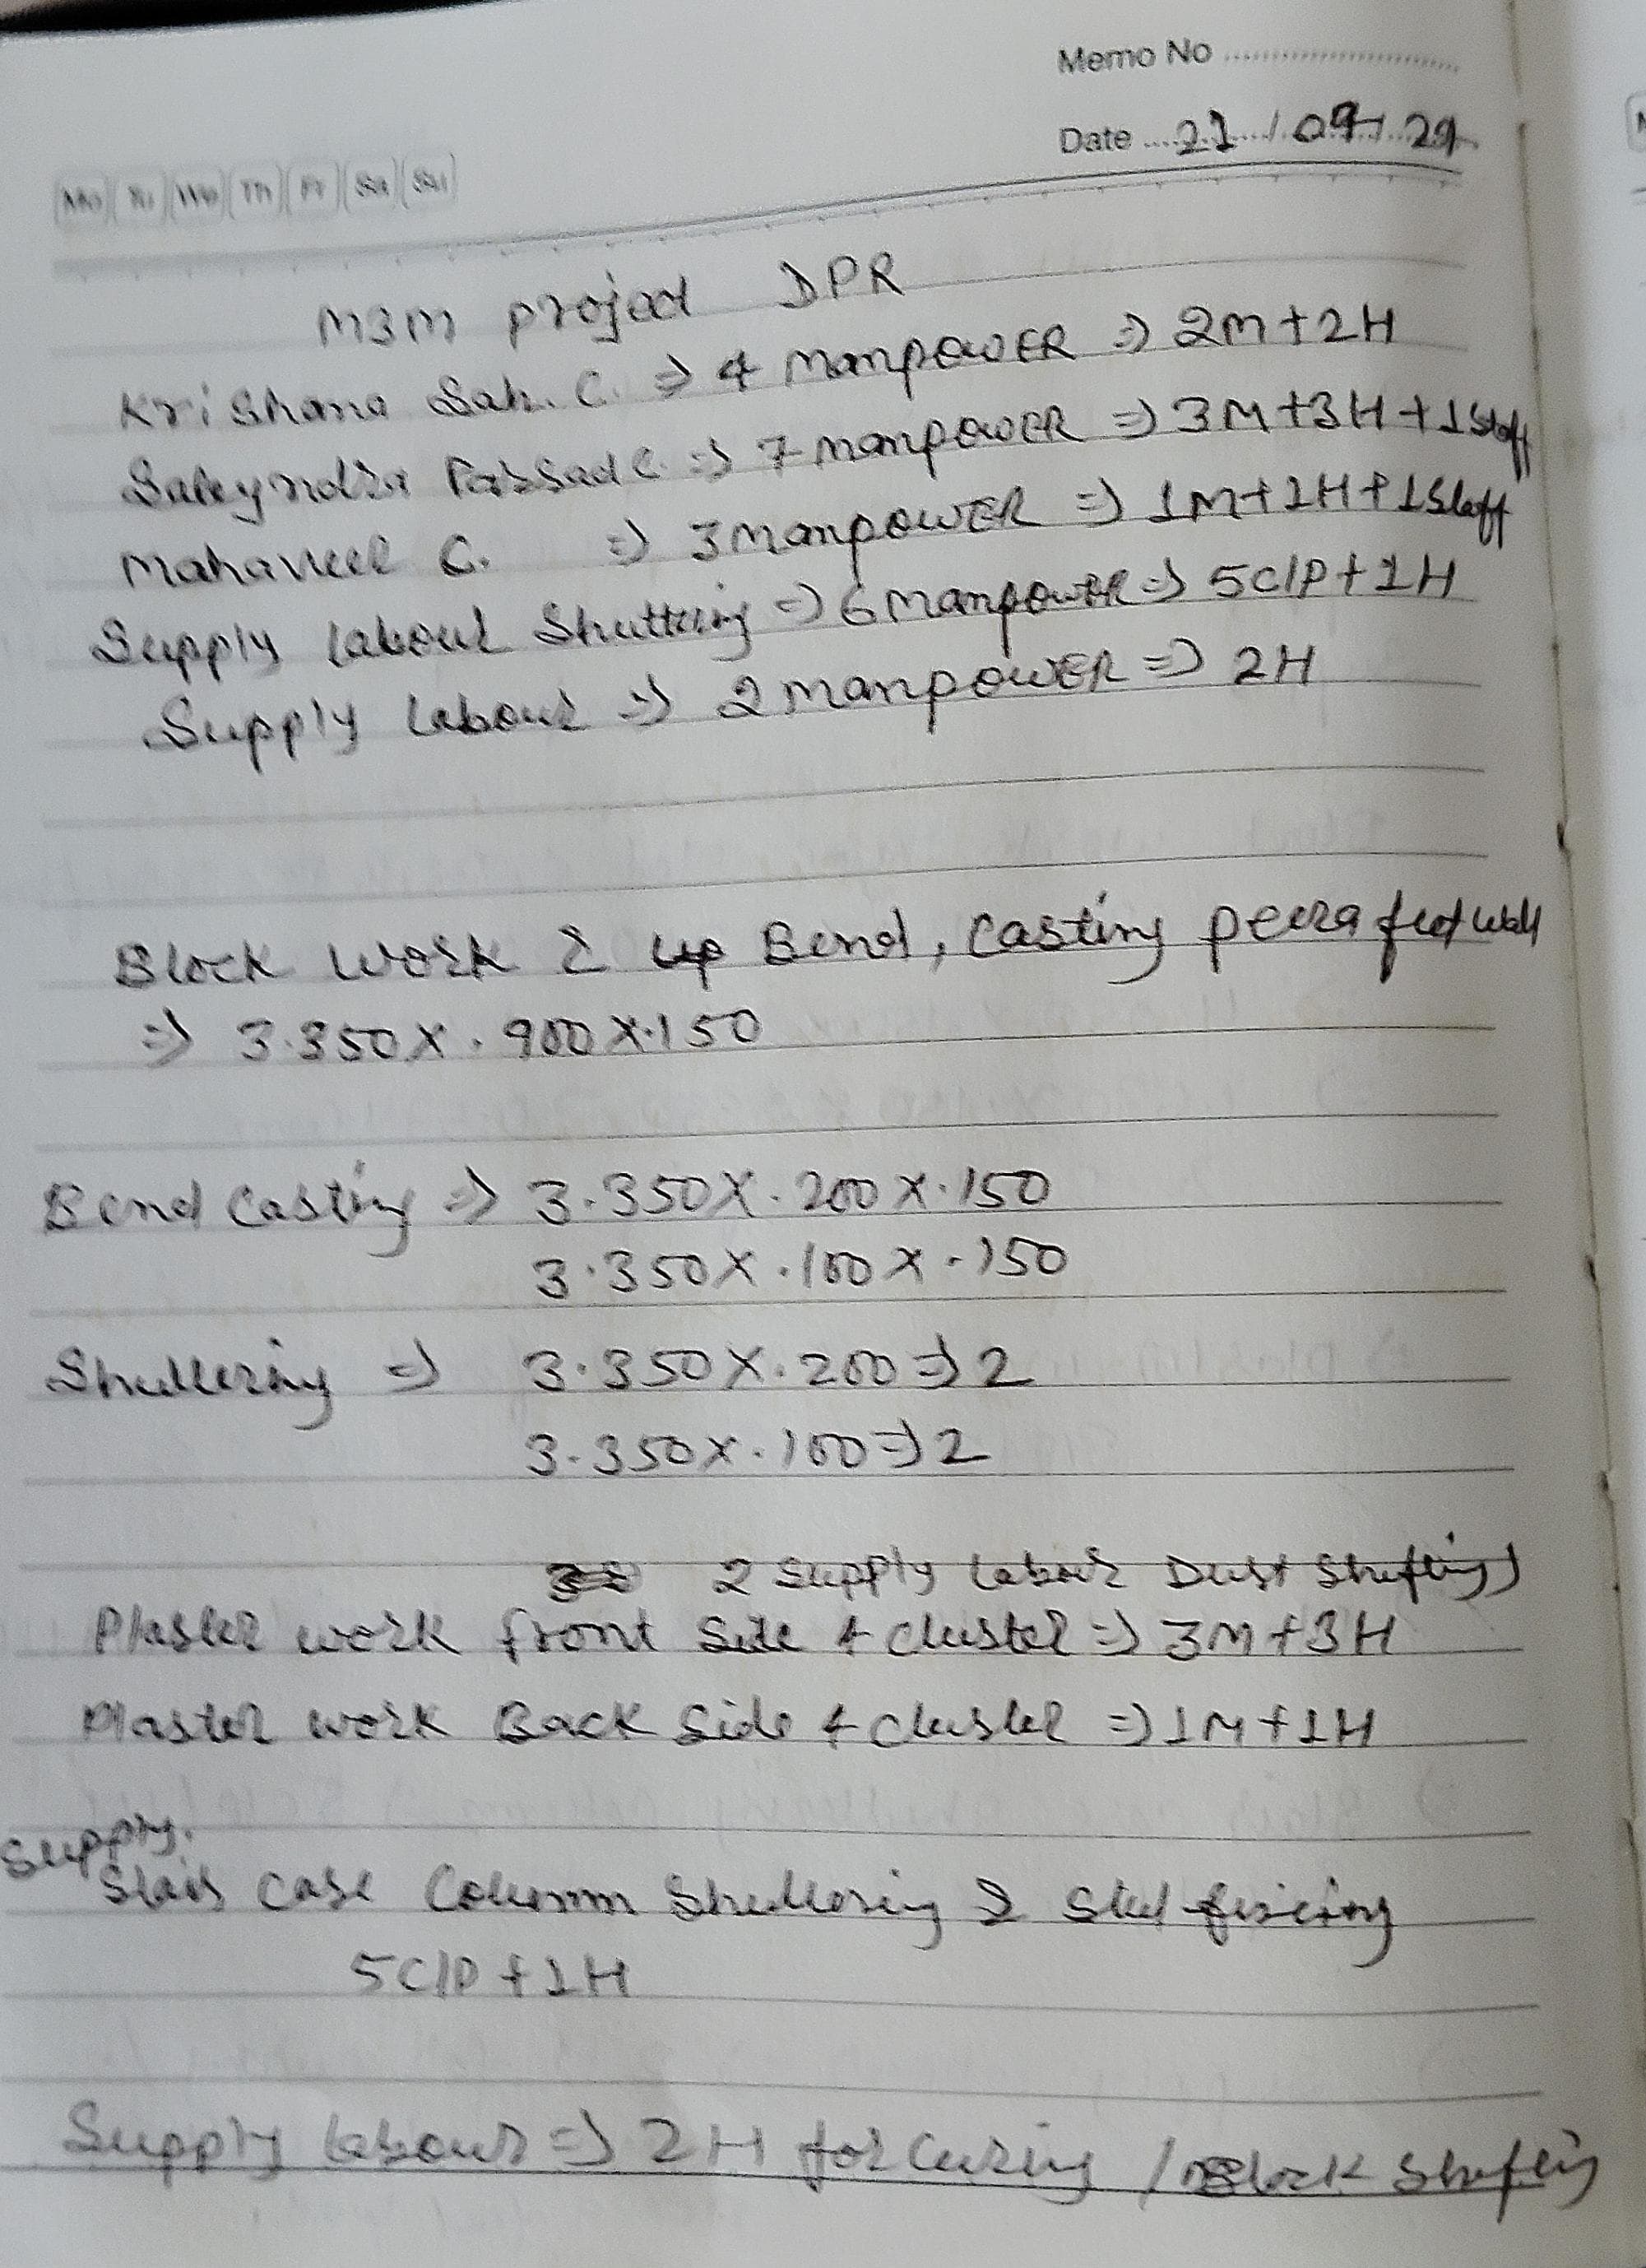 Memo No
Date 21 / 09 / 21
Mo Tu We Th Fr Sa Su
M3M project DPR
Krishana Sah. C. => 4 Manpower => 2M+2H
Sateyndra Parsad C. => 7 manpower => 3M+3H+1Staff
Mahaveer C. => 3 Manpower => 1M+1H+1Staff
Supply labour Shuttering => 6 Manpower => 5C/P+1H
Supply labour => 2 manpower => 2H
Block work & up Bend, Casting peera feet wall
=> 3.350X.900X.150
Bend Casting => 3.350X.200X.150
3.350X.100X.150
Shuttering => 3.350X.200=>2
3.350X.100=>2
2 Supply labour Dust Shifting)
Plaster work front Side 4 cluster => 3M+3H
Plaster work Back Side 4 cluster => 1M+1H
Supply.
Stair case Column Shuttering & Steel fixing
5C/P+1H
Supply labour => 2H for Curing / Block Shifting